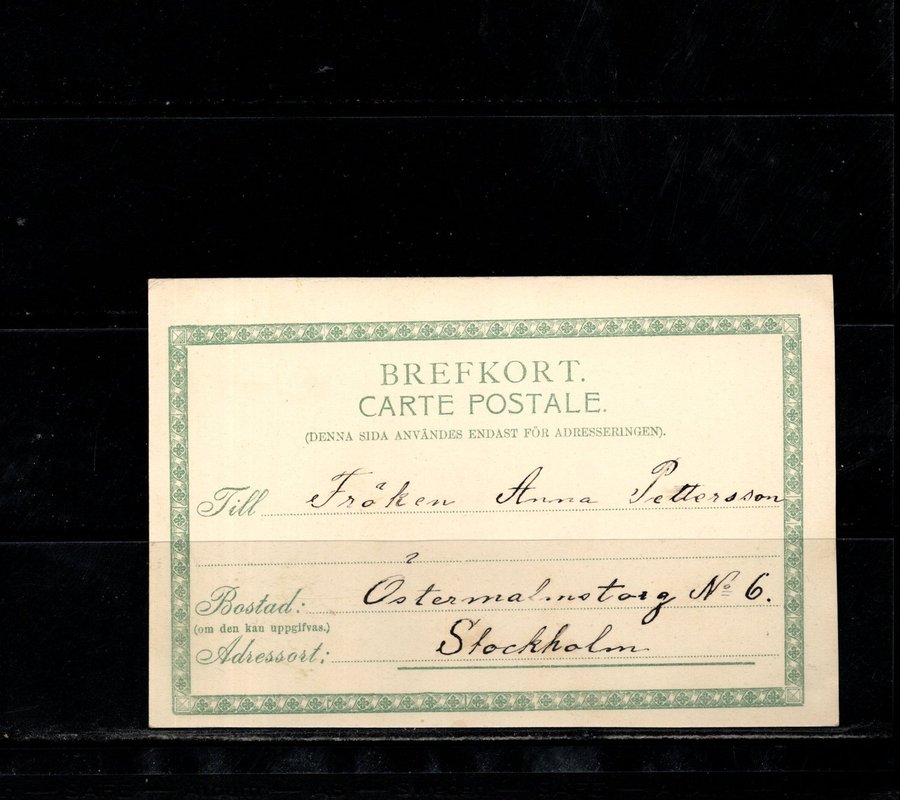 BREFKORT.
CARTE POSTALE.
(DENNA SIDA ANVÄNDES ENDAST FÖR ADRESSERINGEN).
Till Fröken Anna Pettersson
Bostad: Östermalmstorg No 6.
(om den kan uppgifvas.)
Adressort: Stockholm